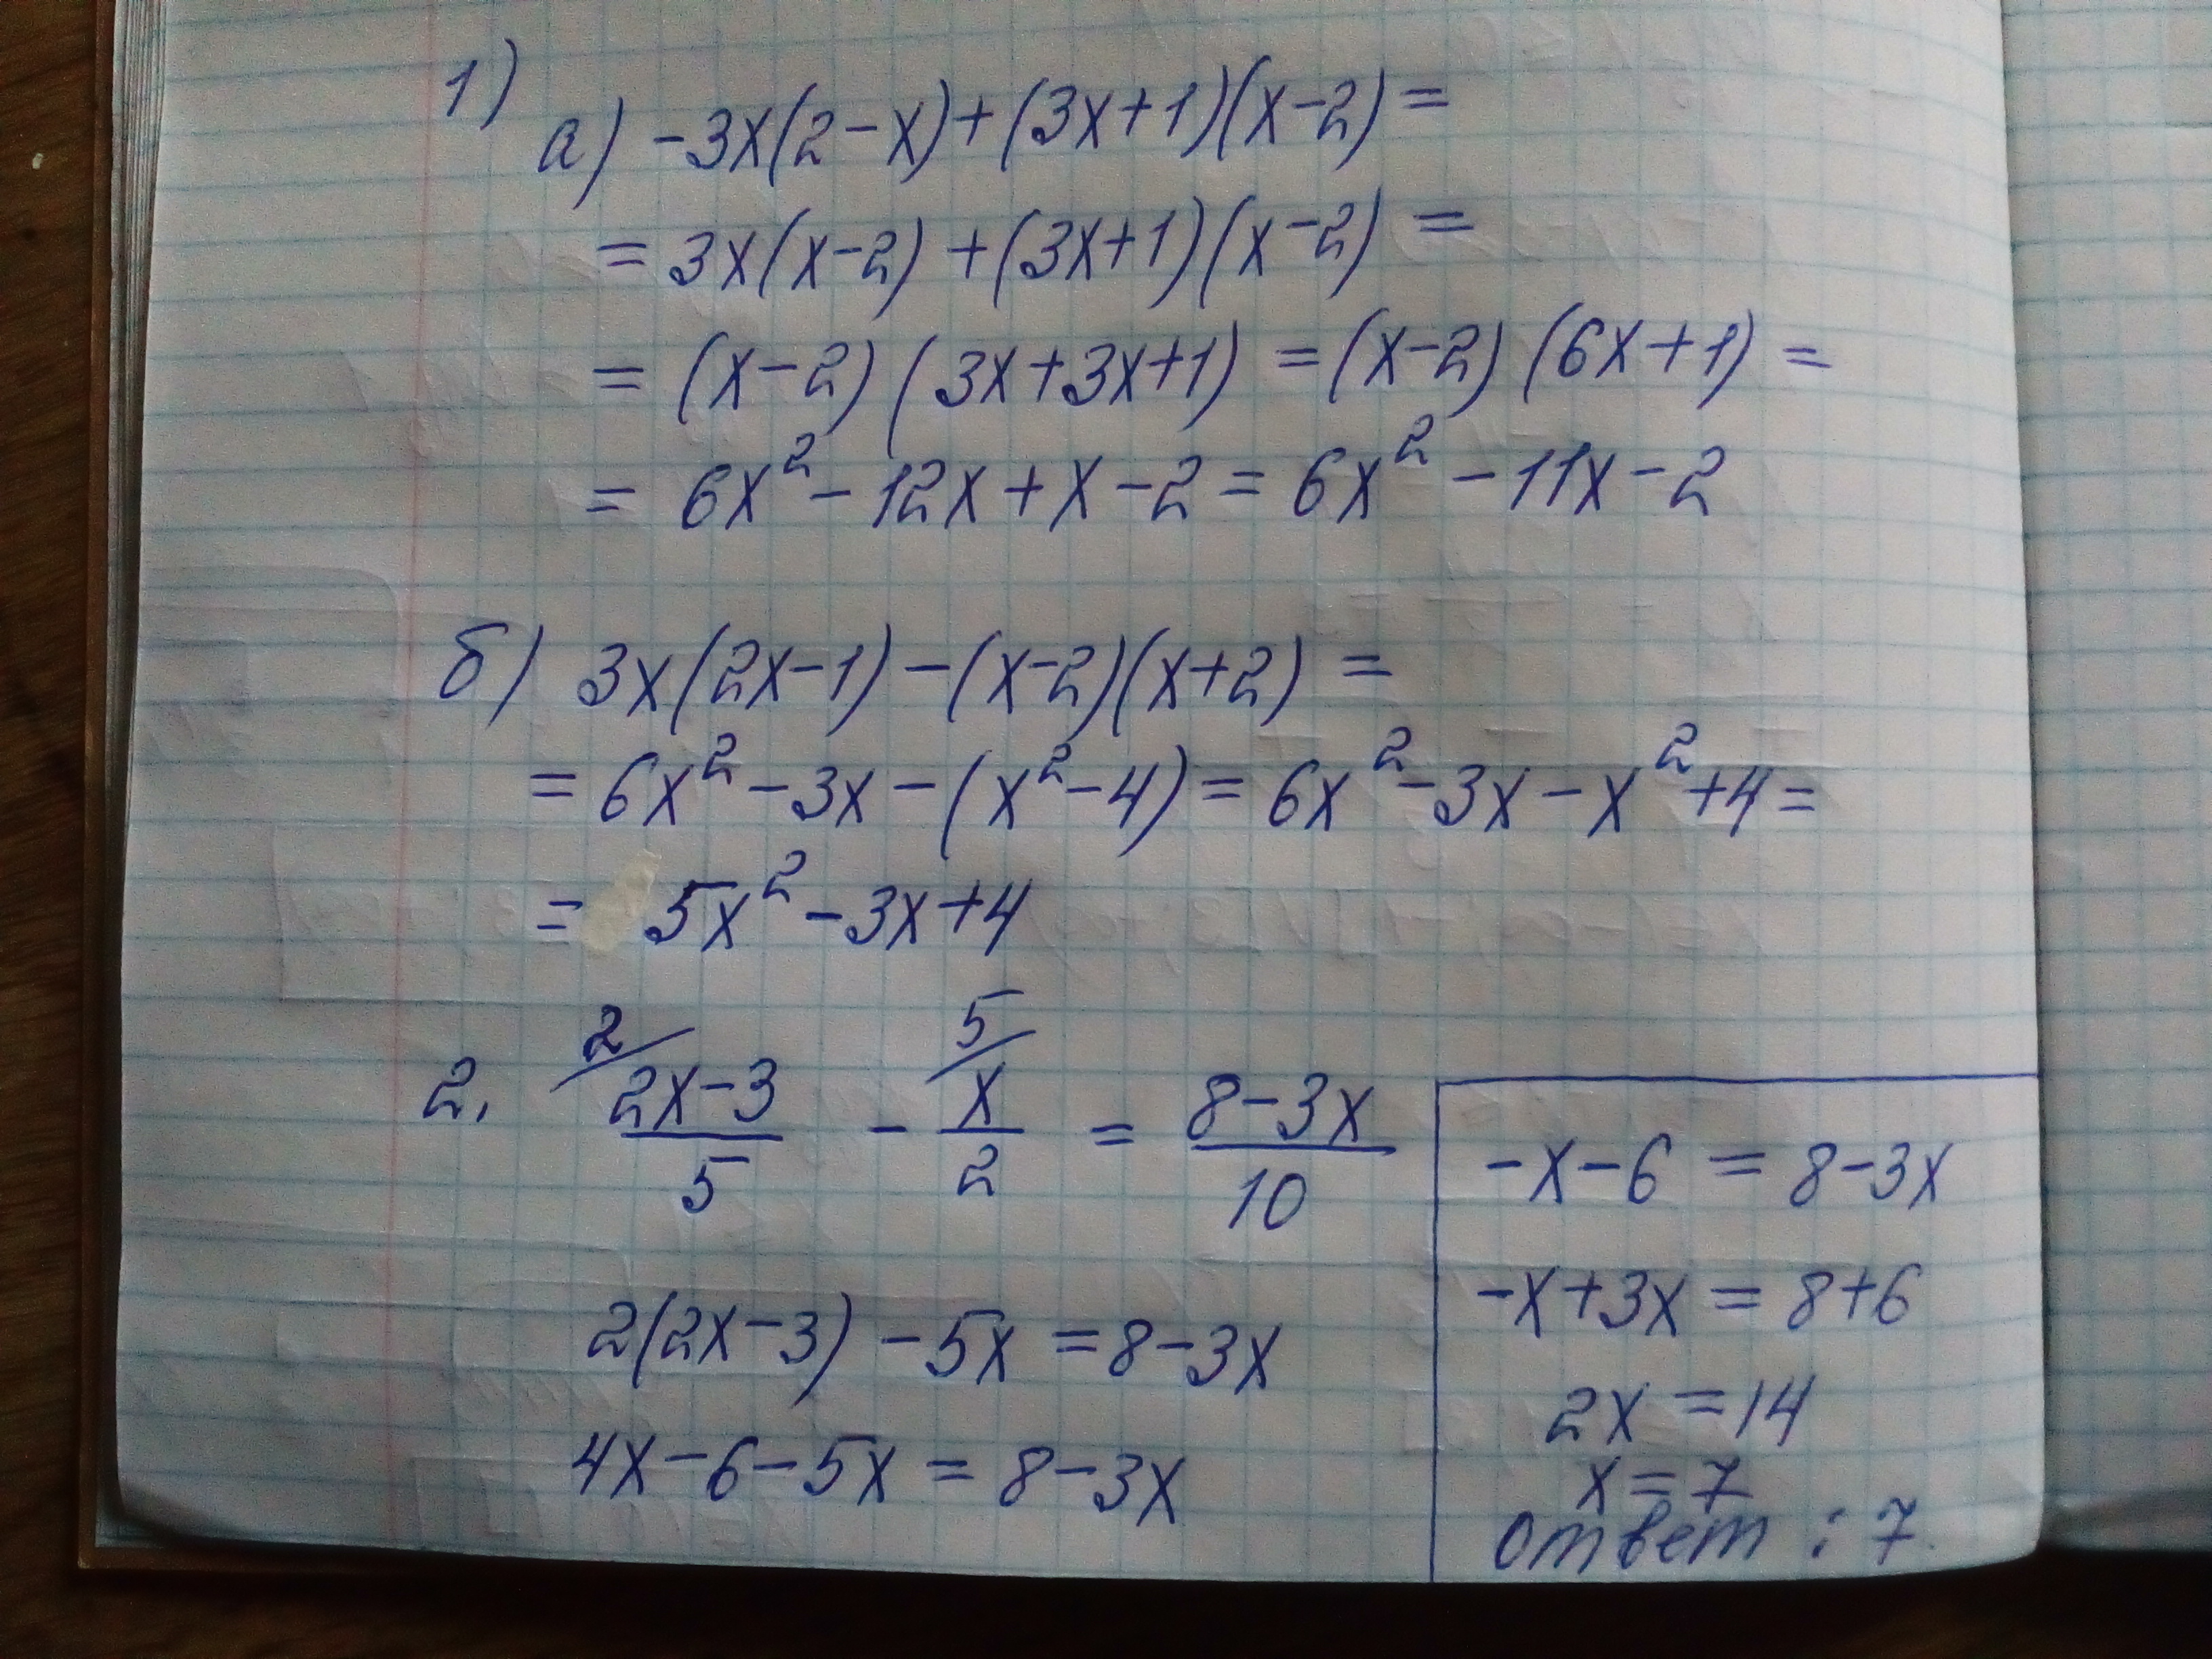 1)
а) -3x(2-x)+(3x+1)(x-2)=
=3x(x-2)+(3x+1)(x-2)=
=(x-2)(3x+3x+1)=(x-2)(6x+1)=
=6x²-12x+x-2=6x²-11x-2
б) 3x(2x-1)-(x-2)(x+2)=
=6x²-3x-(x²-4)=6x²-3x-x²+4=
=5x²-3x+4
2. ²/ (2x-3)/5 - ⁵/ x/2 = (8-3x)/10
2(2x-3)-5x=8-3x
4x-6-5x=8-3x
-x-6=8-3x
-x+3x=8+6
2x=14
x=7
ответ: 7